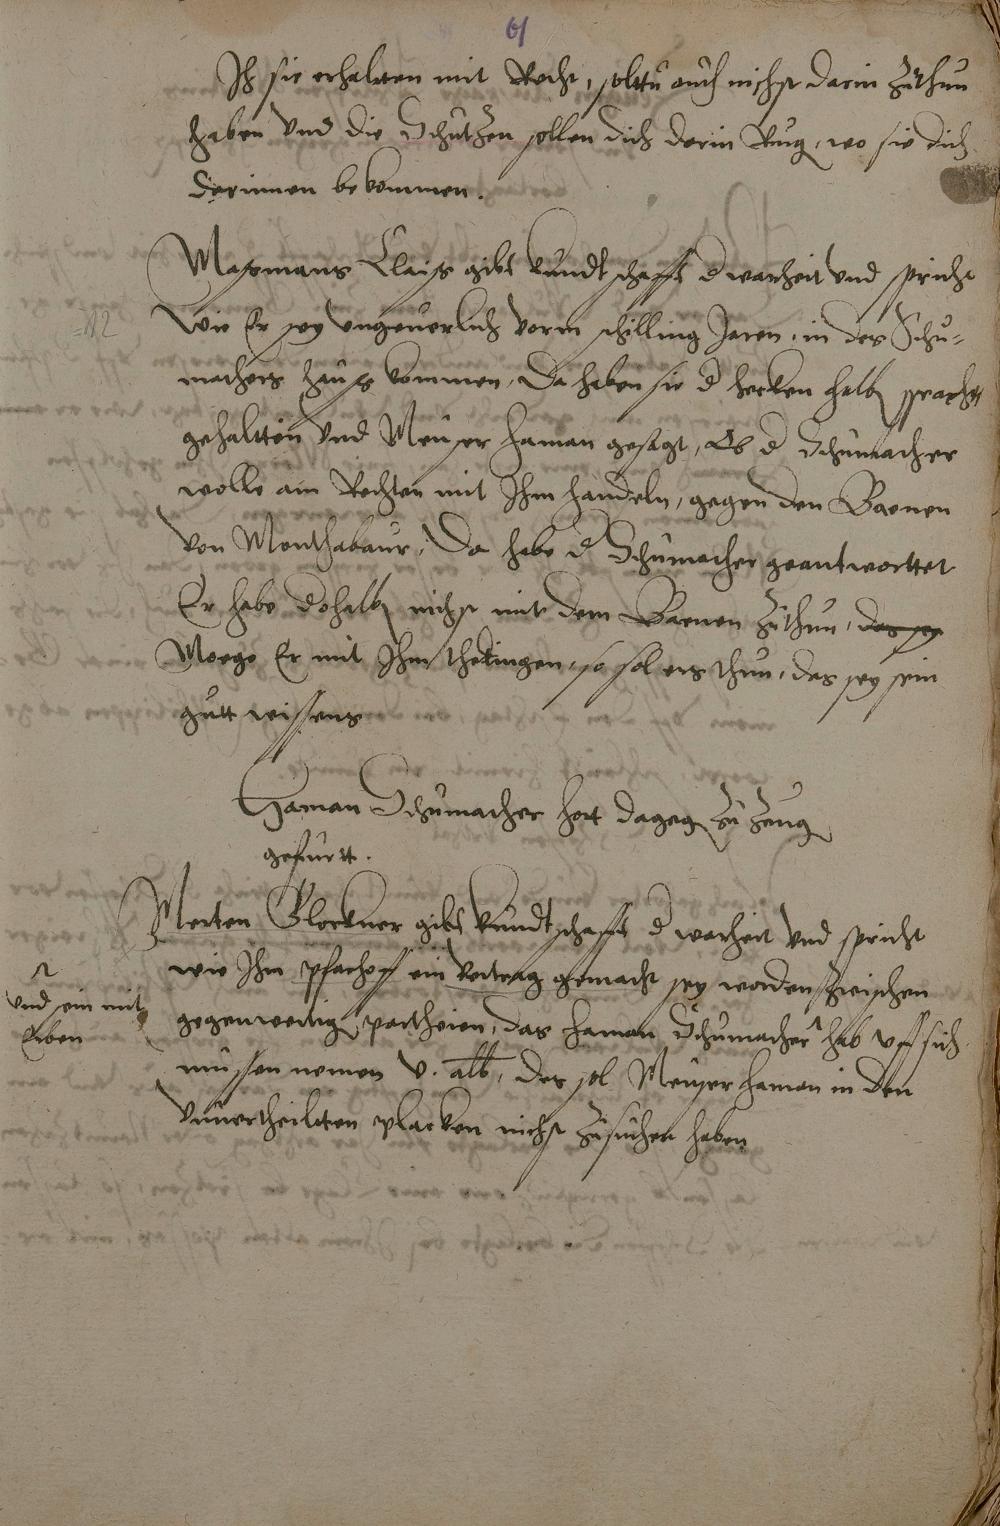 61
Ih sie erhaltten mit Recht, solttu auch nichst darin zuthun
haben Vnd die Schutzen sollen dich darin Rug, wo sie dich
darinnen bekommen.
Masmans Clais gibt kundtschafft d warheit Vnd spricht
Wie Er sey vngeuerlich vorm schilling Jaren, in des Schu-
machers haus kommen, Da haben sie d hecken halb sprach
gehaltten Vnd Meuser haman gesagt, Ob d Schumacher
wolle ain Rechten mit Ihm handeln, gegen den Baenen
von Monthabaur, Da habe d Schumacher geantworttet
Er habe dohalb nichst mit dem Baenen zuthun, das sey
Moege Er mit Ihm thedingen, so sol ers thun, das sey sein
gutt wissens
Haman Schumacher hort dageg zu zeug
gefurtt.
Merten Glockner gibt kundtschafft d warheit Vnd spricht
wie Ihm pfachoff ein vertrag gemacht sey worden zwischen
gegenwertig partheien, das haman Schumacher hab vff sich
mussen nemen v. alb, des sol Meuser haman in den
vnuertheiltten placken nichst zusuchen haben
vnd sein mit
Erben